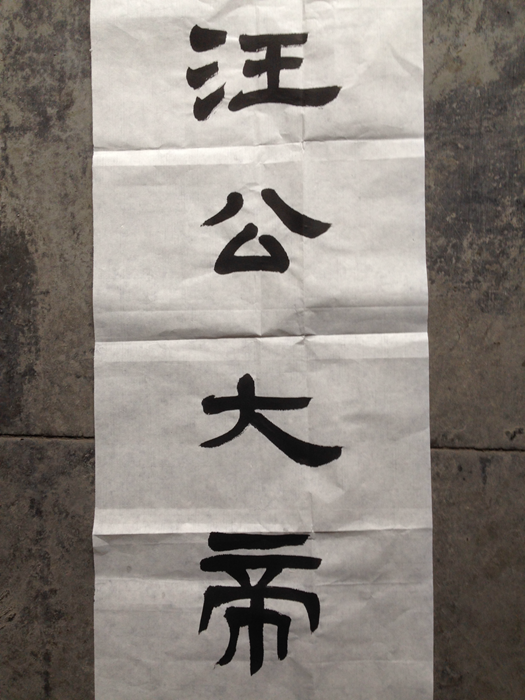 汪公大帝